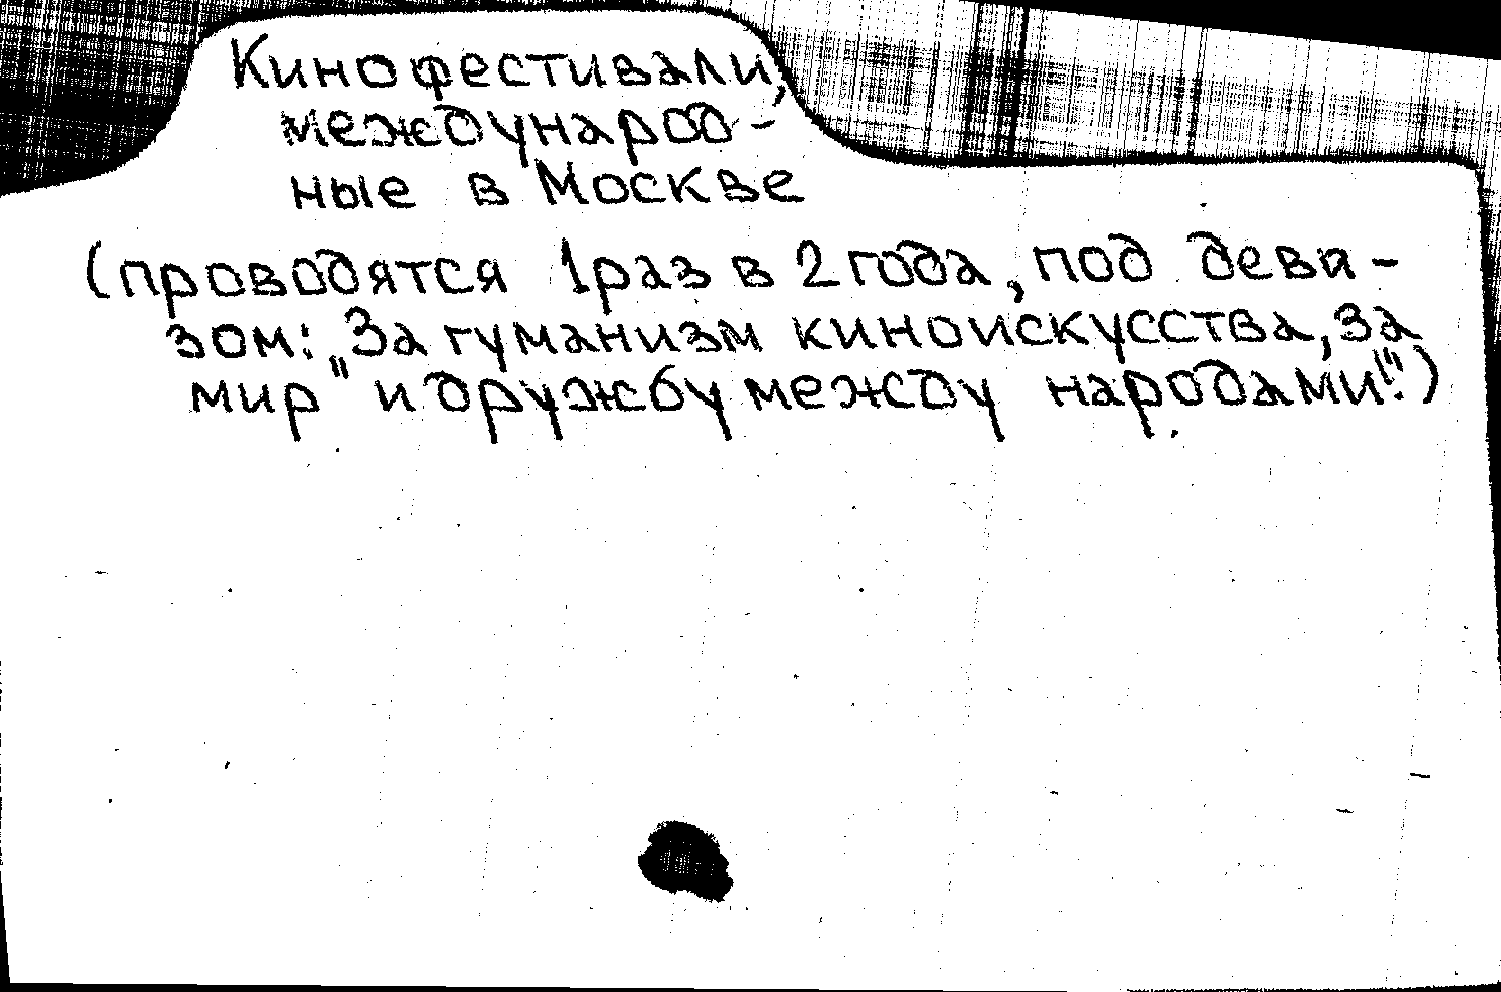 Кинофестивали,
международ-
ные в Москве
(проводятся 1 раз в 2 года, под деви-
зом: „За гуманизм киноискусства, за
мир" и дружбу между народами!")